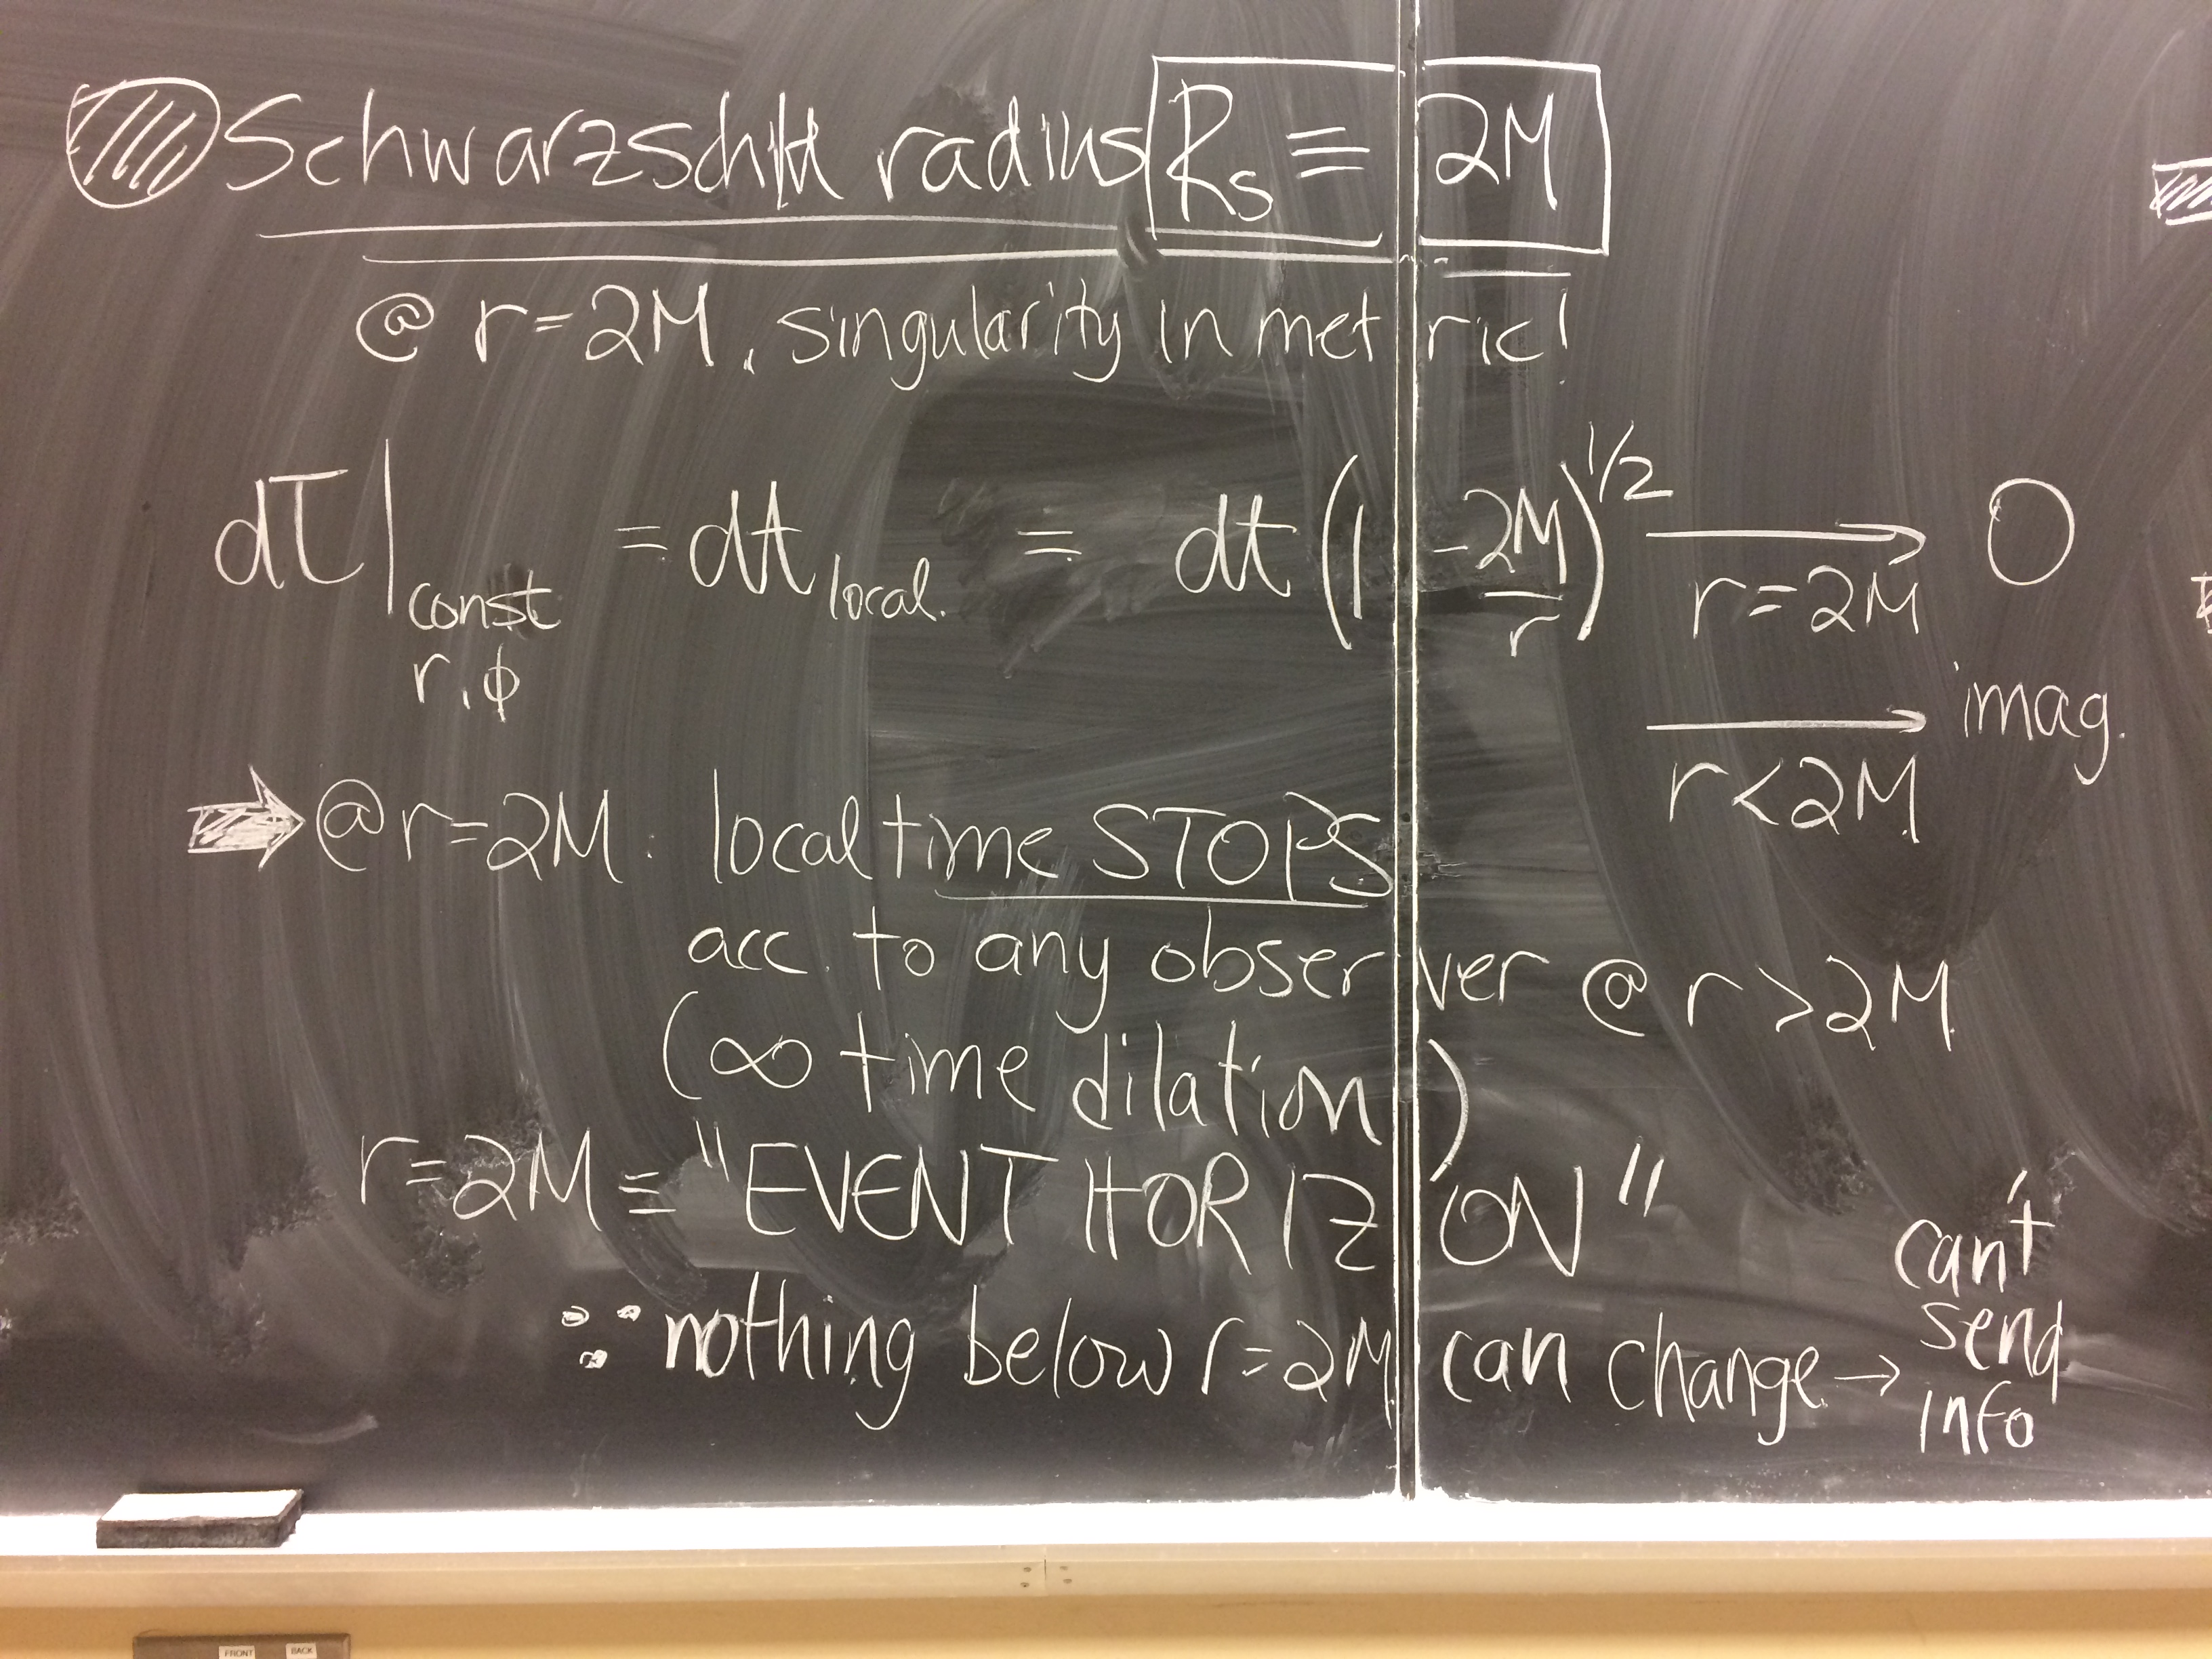 Schwarzschild radius R_S ≡ 2M
@ r=2M, singularity in metric!
dτ|const r,φ = dt local = dt (1 - 2M/r)^1/2 → r=2M 0
→ r<2M imag.
@ r=2M: local time STOPS
acc. to any observer @ r>2M
(∞ time dilation)
r=2M ≡ "EVENT HORIZON"
∵ nothing below r=2M can change → can't send info
FRONT BACK